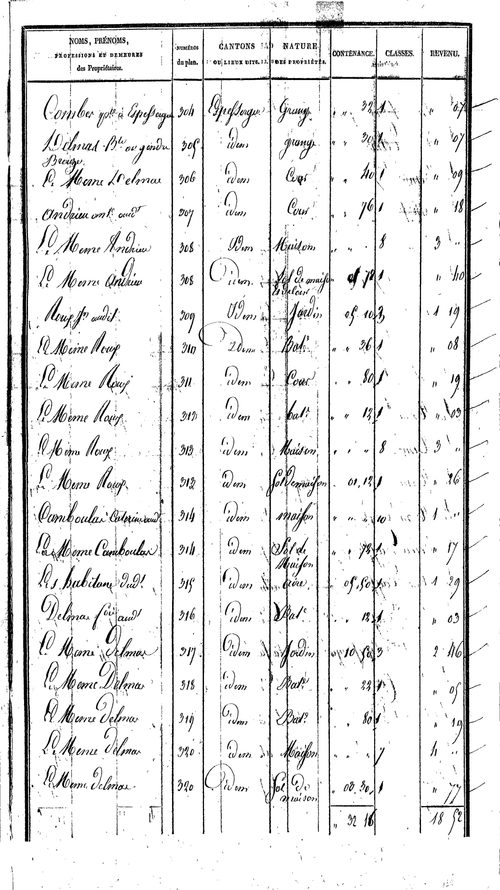 NOMS, PRÉNOMS, PROFESSIONS ET DEMEURES des Propriétaires. NUMÉROS du plan. CANTONS OU LIEUX DITS. NATURE DES PROPRIÉTÉS. CONTENANCE. CLASSES. REVENU.
Combes à Espessergue 304 Espessergue Grange " " 32 1 " 07
Delmas Bte ou gendre 305 idem grange " " 30 1 " 07
Le Meme Delmas 306 idem Cour " " 40 1 " 09
Andrieu ant. audt 307 idem Cour " " 76 1 " 18
Le Meme Andrieu 308 Idem Maison " " 8 3 "
Le Meme Andrieu 308 idem Sol de maison 1 78 1 " 40
Roux audit 309 Idem Jardin 05 10 3 1 19
Le Meme Roux 310 Idem Batt " " 36 1 " 08
Le Meme Roux 311 idem Cour " " 80 1 " 19
Le Meme Roux 312 idem batt " " 12 1 " 03
Le Meme Roux 313 idem Maison " " 8 3 "
Le Meme Roux 313 idem Sol de maison 01 12 1 " 26
Camboulas audt 314 idem maison " " 10 1 "
La Meme Camboulas 314 idem Sol de Maison " 72 1 " 17
Les habitans dudt 315 idem aire 05 50 1 1 29
Delmas audt 316 idem Batt " 12 1 " 03
Le Meme Delmas 317 idem Jardin 10 50 3 2 46
Le Meme Delmas 318 idem Batt " 22 1 " 05
Le Meme Delmas 319 idem Batt " 80 1 " 19
Le Meme Delmas 320 idem Maison " " 7 4 "
Le Meme Delmas 320 idem Sol de maison 03 30 1 " 77
" 32 16 18 52